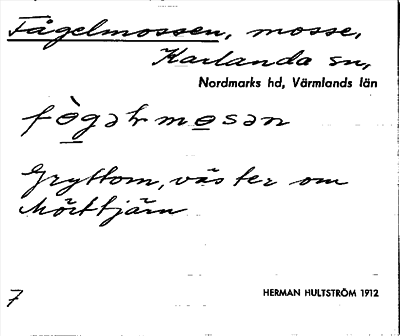 Fågelmossen, mosse,
Karlanda sn,
Nordmarks hd, Värmlands län
fo̠gəɫmo̠sən
Gryttom, väster om
Mörttjärn
7
HERMAN HULTSTRÖM 1912